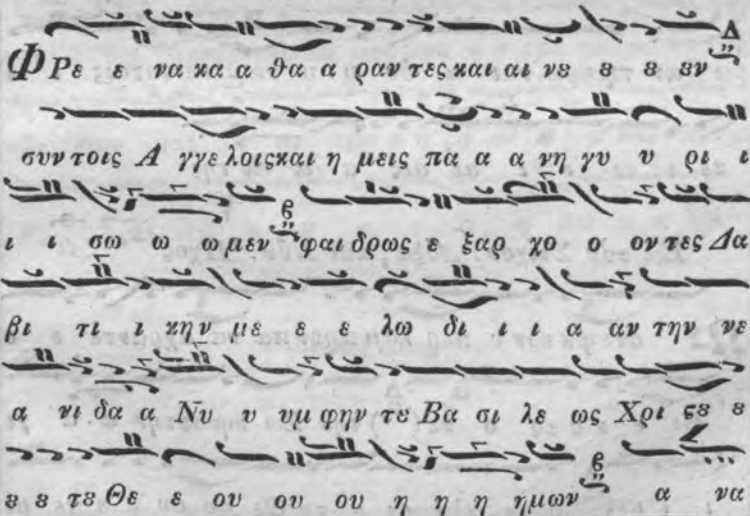 ΦΡε ε να κα α θα α ραν τες και αι νȣ ȣ ȣ ȣν
συν τοις Α γγε λοις και η μεις πα α α νη γυ υ ρι ι
ι ι σω ω ω μεν φαι δρως ε ξαρ χο ο ον τες Δα
βι τι ι κην με ε ε λω δι ι ι α αν την νε
α νι δα α Νυ υ υμ φην τȣ Βα σι λε ως Χρι ϛȣ ȣ
ȣ ȣ τȣ Θε ε ου ου ου η η η ημων α να